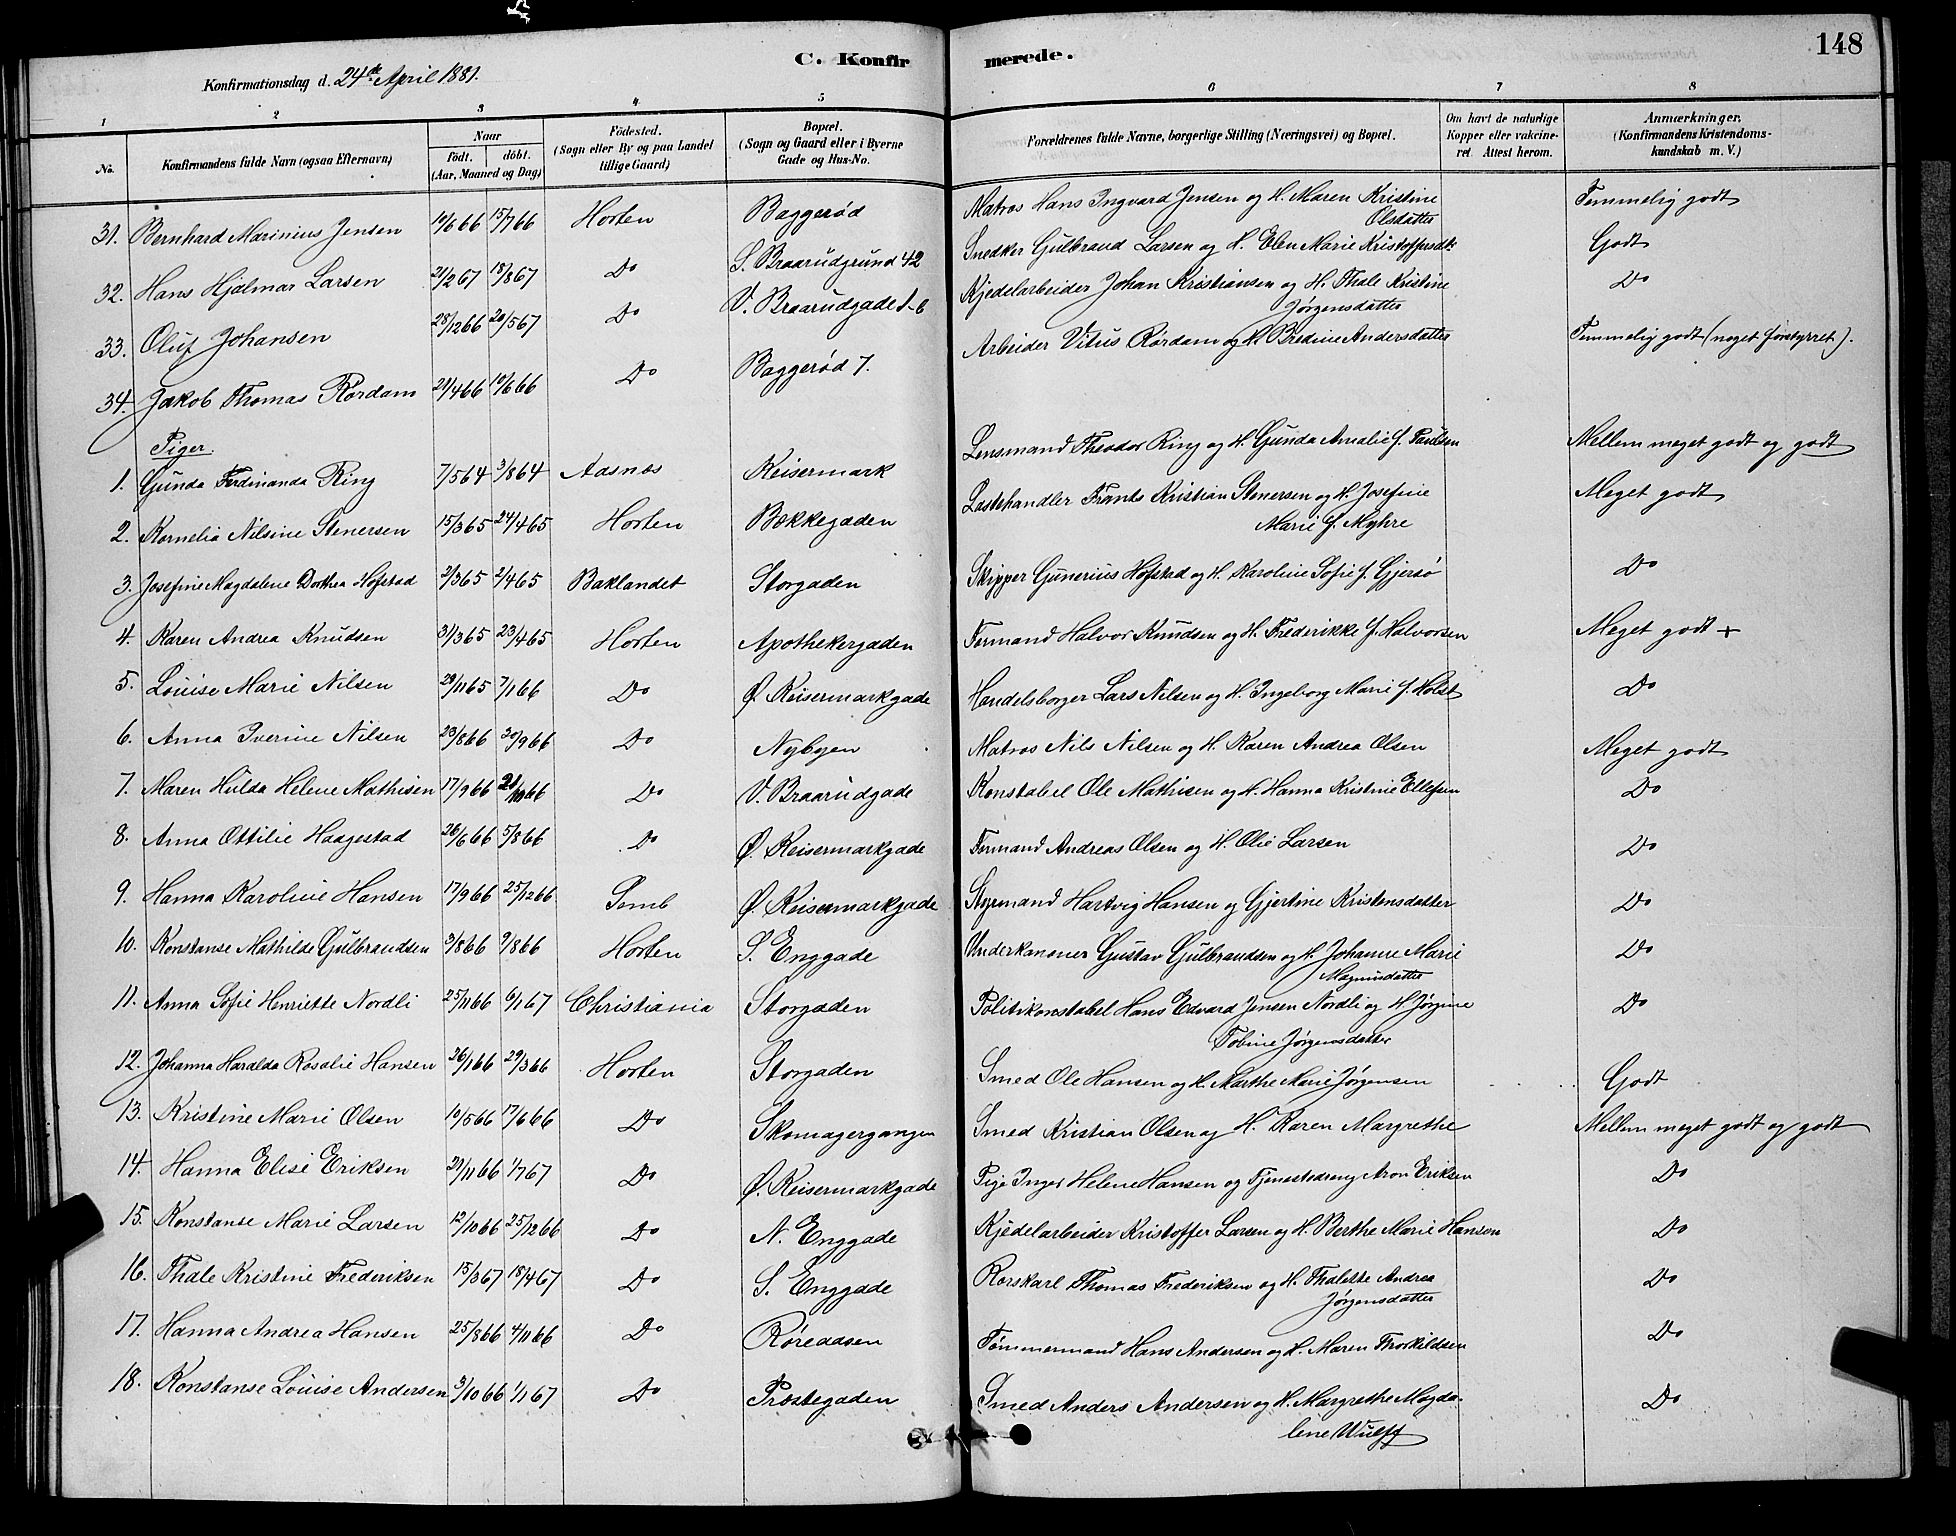 C. Konfirmerede.
148
Konfirmationsdag d. 24de April 1881.
1 2 3 4 5 6 7 8
No. Konfirmandens fulde Navn (ogsaa Efternavn) Naar født. døbt. (Aar, Maaned og Dag) Fødested. (Sogn eller By og paa Landet tillige Gaard) Bopæl. (Sogn og Gaard eller i Byerne Gade og Hus-No. Forældrenes fulde Navne, borgerlige Stilling (Næringsvei) og Bopæl. Om havt de naturlige Kopper eller vakcineret. Attest herom. Anmærkninger. (Konfirmandens Kristendomskundskab m. V.)
31. Bernhard Marinius Jensen 10/6 66 15/7 66 Horten Baggerød Matros Hans Ingvard Jensen og H. Maren Kristine Olsdatter Temmelig godt
32. Hans Hjalmar Larsen 21/2 67 18/8 67 Do S. Braarudgrund 42 Snedker Gulbrand Larsen og H. Elen Marie Kristoffersdt. Godt
33. Oluf Johansen 28/12 66 20/5 67 Do V. Braarudgade Kjedelarbeider Johan Kristiansen og H. Thale Kristine Jørgensdatter Do
34. Jakob Thomas Rørdam 21/4 66 10/6 66 Do Baggerød 7. Arbeider Vitus Rørdam og H. Bredine Andersdatter Temmelig godt (noget forstyrret).
Piger.
1. Gunda Ferdinanda Ring 7/5 64 3/8 64 Aasnæs Keisermark Lensmand Theodor Ring og H. Gunda Amalie f. Paulsen Mellem meget godt og godt
2. Kornelia Nilsine Stenersen 15/3 65 24/4 65 Horten Bækkegaden Lastehandler Frants Kristian Stenersen og H. Josefine Marie f. Myhre Meget godt
3. Josefine Magdalene Dorthea Hofstad 2/3 65 2/4 65 Baklandet Storgaden Skipper Gunerius Hofstad og H. Karoline Sofie f. Gjersø Do
4. Karen Andrea Knudsen 31/3 65 23/4 65 Horten Apothekergaden Formand Halvor Knudsen og H. Frederikke f. Halvorsen Meget godt +
5. Louise Marie Nilsen 29/11 65 7/1 66 Do Ø. Keisermarkgade Handelsborger Lars Nilsen og H. Ingeborg Marie f. Holst Do
6. Anna Iverine Nilsen 23/8 66 30/9 66 Do Nybyen Matros Nils Nilsen og H. Karen Andrea Olsen Meget godt
7. Maren Hulda Helene Mathisen 17/9 66 21/10 66 Do V. Braarudgade Konstabel Ole Mathisen og H. Hanna Kristine Ellefsen Do
8. Anna Ottilie Haagestad 26/6 66 5/8 66 Do Ø. Keisermarkgade Formand Andreas Olsen og H. Olie Larsen Do
9. Hanna Karoline Hansen 17/9 66 25/12 66 Semb Ø. Keisermarkgade Styrmand Hartvig Hansen og Gjertine Kristensdatter Do
10. Konstanse Mathilde Gulbrandsen 3/8 66 9/8 66 Horten S. Enggade Underkanoner Gustav Gulbrandsen og H. Johanne Marie Magnusdatter Do
11. Anna Sofie Henriette Nordli 25/11 66 6/1 67 Christiania Storgaden Politikonstabel Hans Edvard Jensen Nordli og H. Jørgine Tobine Jørgensdatter Do
12. Johanna Haralda Rosalie Hansen 26/1 66 29/3 66 Horten Storgaden Smed Ole Hansen og H. Marthe Marie Jørgensen Godt
13. Kristine Marie Olsen 10/5 66 17/6 66 Do Skomagergangen Smed Kristian Olsen og H. Karen Margrethe Mellem meget godt og godt
14. Hanna Elise Eriksen 29/11 66 1/7 67 Do Ø. Keisermarkgade Pige Inger Helene Hansen og Tjenestedreng Aron Eriksen Do
15. Konstanse Marie Larsen 12/10 66 25/12 66 Do N. Enggade Kjedelarbeider Kristoffer Larsen og H. Berthe Marie Hansen Do
16. Thale Kristine Frederiksen 15/3 67 18/4 67 Do S. Enggade Rorskarl Thomas Frederiksen og H. Thalette Andrea Jørgensdatter Do
17. Hanna Andrea Hansen 25/8 66 4/11 66 Do Røreaasen Tømmermand Hans Andersen og H. Maren Thorkildsen Do
18. Konstanse Louise Andersen 3/10 66 1/1 67 Do Præstegaden Smed Anders Andersen og H. Margrethe Magdalene Wulff Do